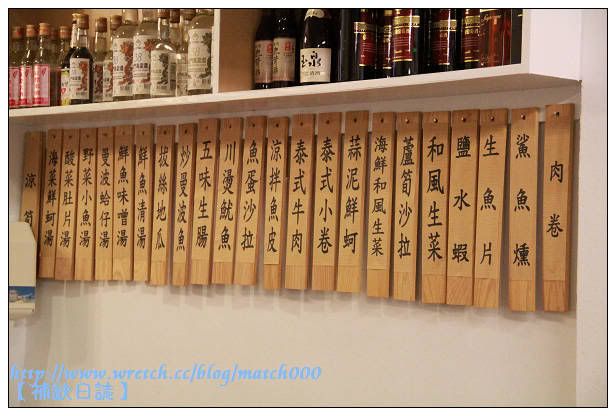 玉泉
肉卷
鯊魚燻
生魚片
鹽水蝦
和風生菜
蘆筍沙拉
海鮮和風生菜
蒜泥鮮蚵
泰式小卷
泰式牛肉
涼拌魚皮
魚蛋沙拉
川燙魷魚
五味生腸
炒曼波魚
拔絲地瓜
鮮魚清湯
鮮魚味噌湯
曼波蛤仔湯
野菜小魚湯
酸菜肚片湯
海菜鮮蚵湯
涼筍
http://www.wretch.cc/blog/match000
【補缺日誌】